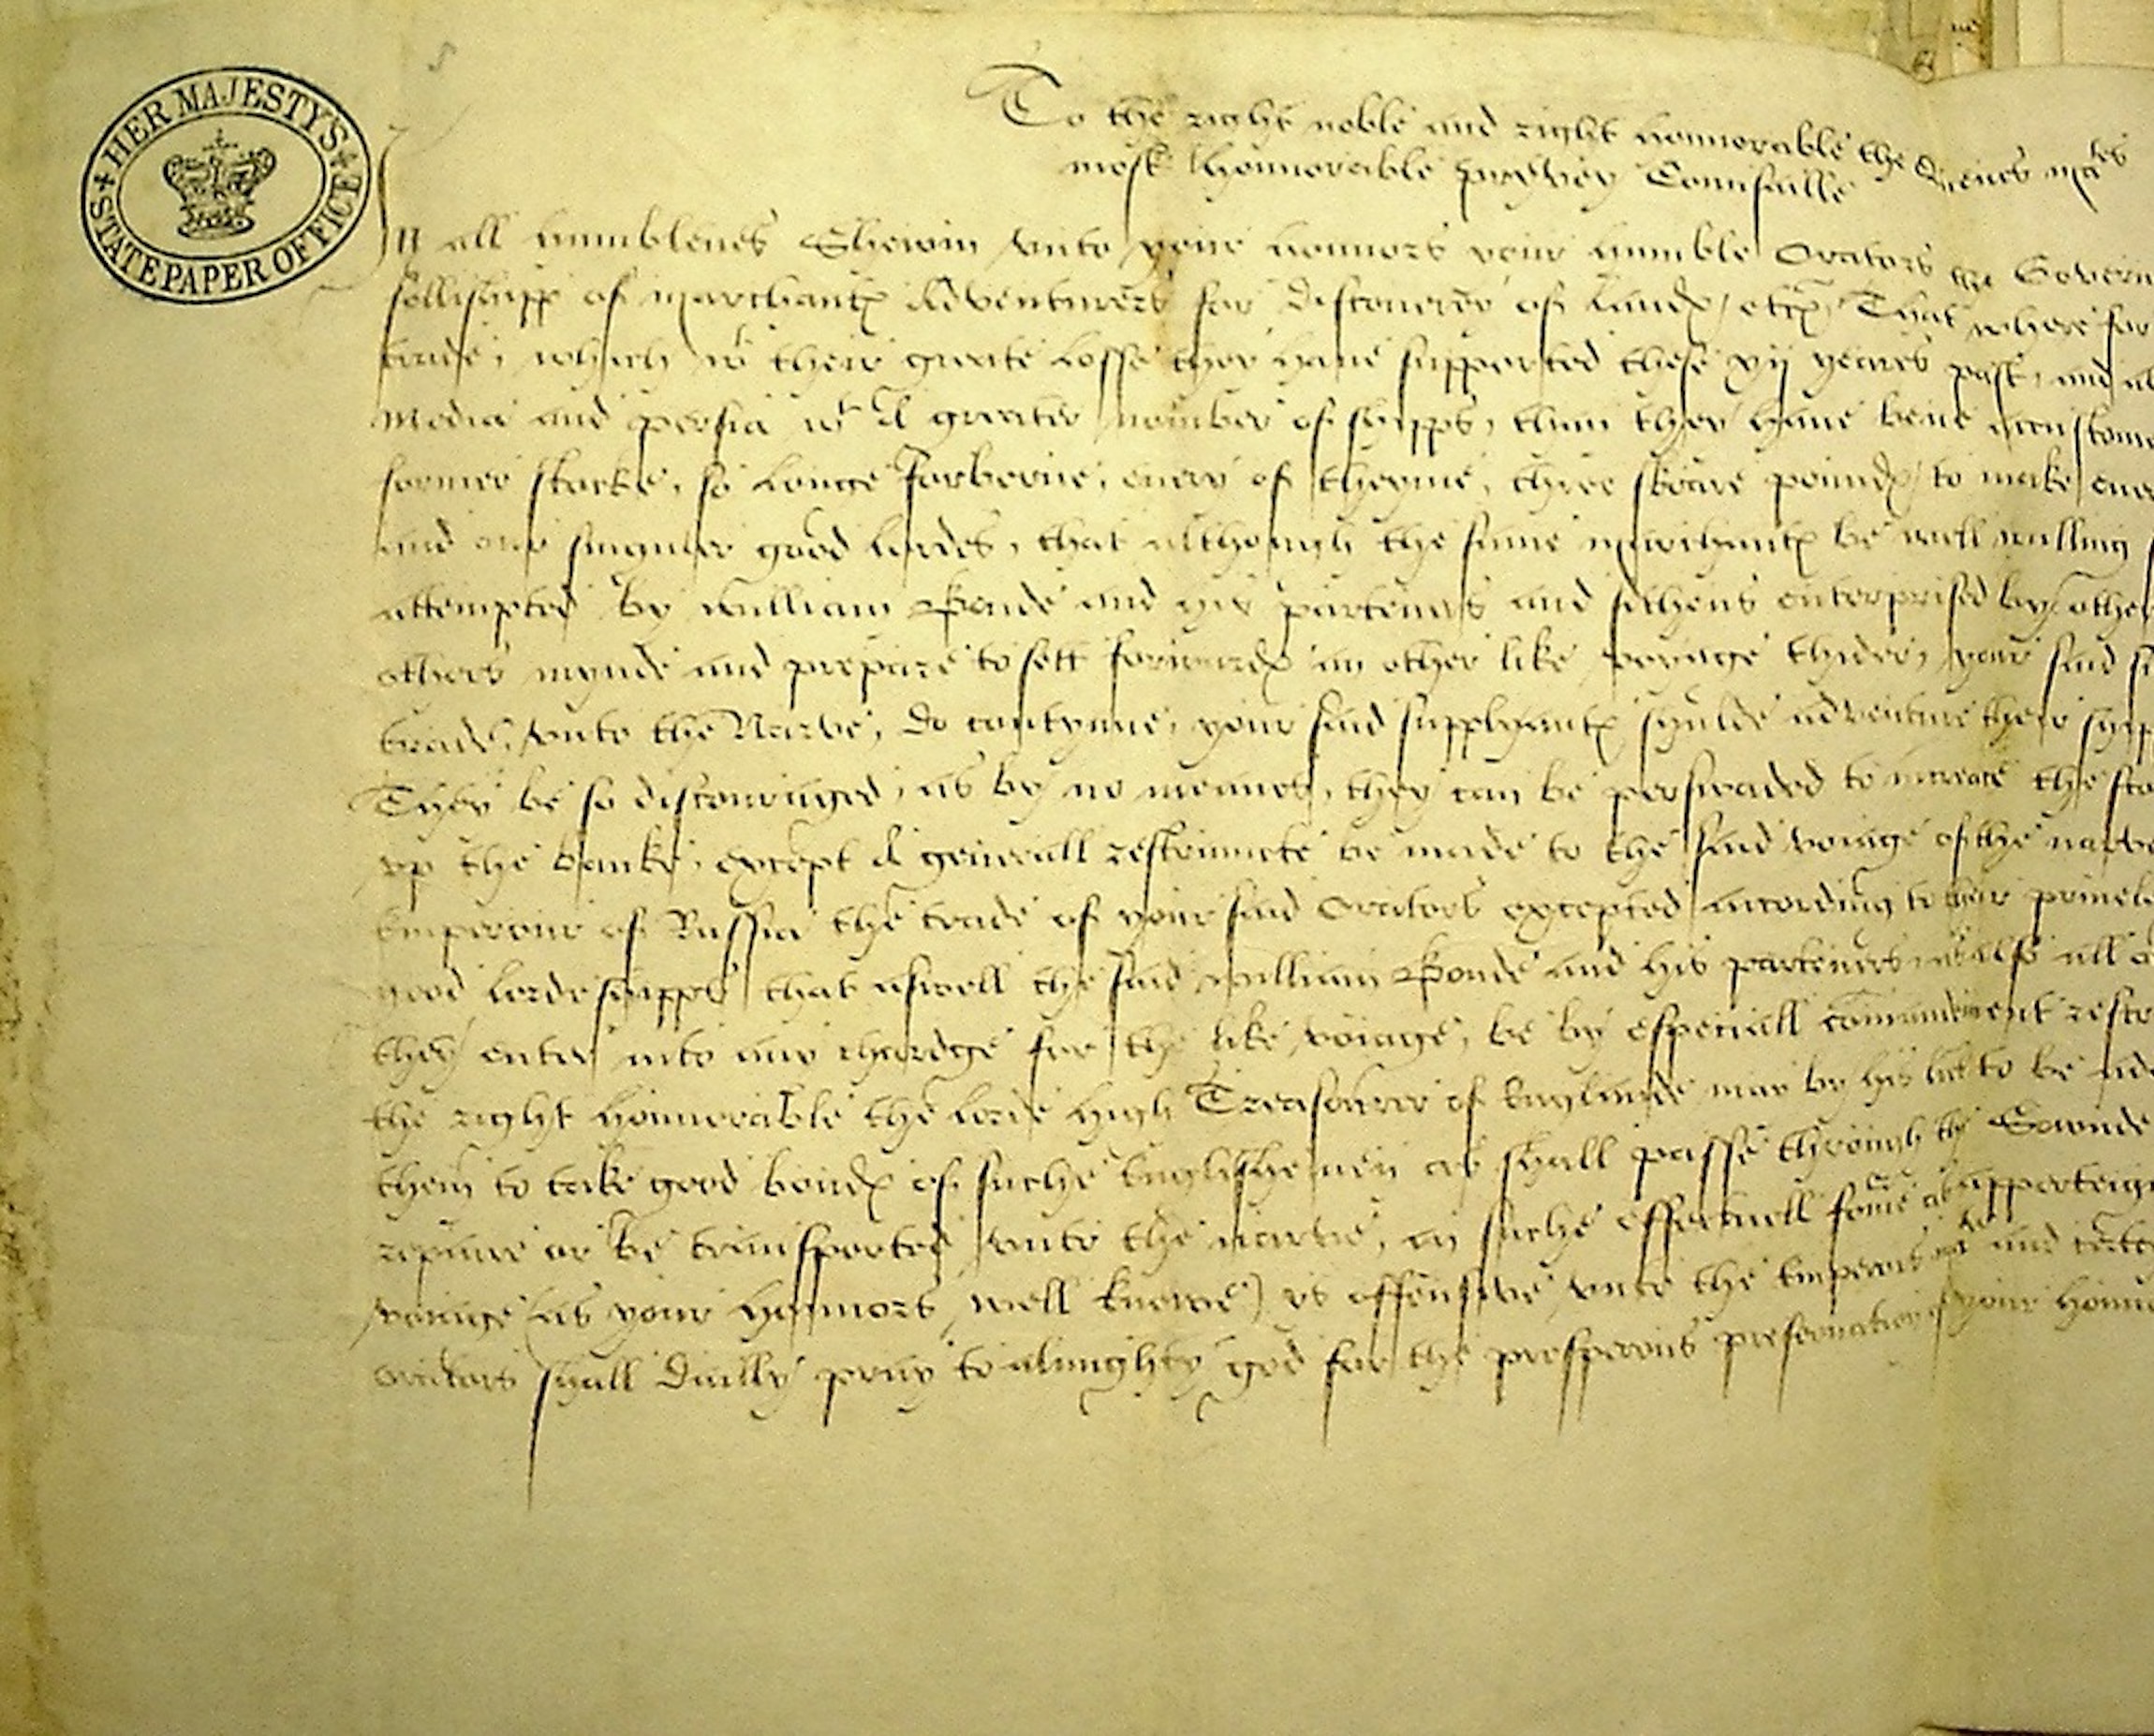 HER MAJESTY'S STATE PAPER OFFICE
To the right noble and right honnorable the Quenes ma.tes
most honnorable pryvey Counsaille
In all humblenes Shewin vnto your honnors your humble Orators the Govern
fellishipp of marchantes Adventurers for discouerie of landes, etc. That where for
trade, which wt their greate losse they haue supported these xij yeares past, and
Media and Persia wt a greater nomber of shipps, than they haue bene accustome
former stocke, so longe forborne, euery of theyme, three skoare poundes, to make
and our singuler good lordes, that although the same marchantes be well willing
attempted by william Bonde and his parteners and sithens enterprised by other
others mynde and prepare to sett forwardes an other like voyage thider, your said
trade, vnto the Narve, do contynue, your said supplyantes shulde adventure their
They be so discouraged, as by no meanes, they can be perswaded to increace the sto
vp the banke, except a generall restrainete be made to the said voiage of the narve
Emperour of Russia the trade of your said Orators excepted according to their priuele
good lordeshipps that aswell the said william Bonde and his parteners as also all
they enter into any chardge for the like voiage, be by especiall comaundment restr
the right honnorable the lorde high Treasourer of Englande may by his lre to be
them to take good bondes of suche Englishe men as shall passe through the Sownde
repaire or be transported vnto the narve, in suche effectuell forme as apperteig
voiage (as your honnors well knowe) is offensive vnto the Emperors ma.tie and
orators shall dailly praye to almighty god for the prosperous preseruation of your honn